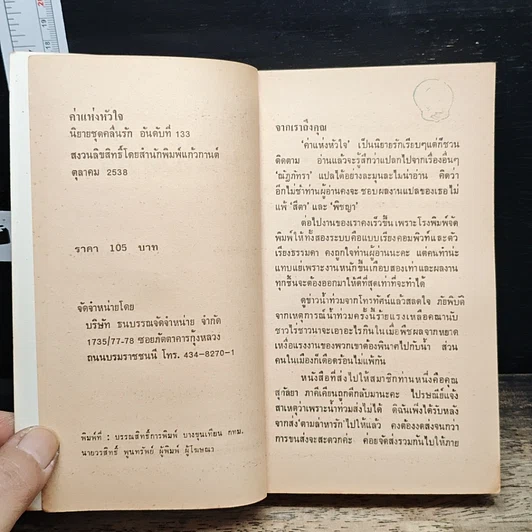 ค่าแห่งหัวใจ
นิยายชุดคลื่นรัก อันดับที่ 133
สงวนลิขสิทธิ์โดยสำนักพิมพ์แก้วกานต์
ตุลาคม 2538
ราคา 105 บาท
จัดจำหน่ายโดย
บริษัท ธนบรรณจัดจำหน่าย จำกัด
1735/77-78 ซอยภัตตาคารกุ้งหลวง
ถนนบรมราชชนนี โทร. 434-8270-1
พิมพ์ที่ : บรรณสิทธิ์การพิมพ์ บางขุนเทียน กทม.
นายวรสิทธิ์ พูนทรัพย์ ผู้พิมพ์ ผู้โฆษณา
จากเราถึงคุณ
'ค่าแห่งหัวใจ' เป็นนิยายรักเรียบๆแต่ก็ชวน
ติดตาม อ่านแล้วจะรู้สึกว่าแปลกไปจากเรื่องอื่นๆ
'ณัฏภัทรา' แปลได้อย่างละมุนละไมน่าอ่าน คิดว่า
อีกไม่ช้าท่านผู้อ่านคงจะ ชอบผลงานแปลของเธอไม่
แพ้ 'สีตา' และ 'พิชญา'
ต่อไปงานของเราคงเร็วขึ้น เพราะโรงพิมพ์จัด
พิมพ์ให้ทั้งสองระบบคือแบบเรียงคอมพิวท์และตัว
เรียงธรรมดา คงถูกใจท่านผู้อ่านนะคะ แต่คนทำน่ะ
แทบแย่เพราะงานหนักขึ้นเกือบสองเท่าและผลงาน
ทุกชิ้นจะต้องออกมาให้ดีที่สุดเท่าที่จะทำได้
ดูข่าวน้ำท่วมจากโทรทัศน์แล้วสลดใจ ภัยพิบัติ
จากเหตุการณ์น้ำท่วมครั้งนี้ร้ายแรงเหลือคณานับ
ชาวไร่ชาวนาจะเอาอะไรกินในเมื่อพืชผลจากหยาด
เหงื่อแรงงานของพวกเขาต้องพินาศไปกับน้ำ ส่วน
คนในเมืองก็เดือดร้อนไม่แพ้กัน
หนังสือที่ส่งไปให้สมาชิกท่านหนึ่งคือคุณ
สุกัลยา ภาคีเคียนถูกตีกลับมานะคะ ไปรษณีย์แจ้ง
สาเหตุว่าเพราะน้ำท่วมส่งไม่ได้ ดิฉันเพิ่งได้รับหลัง
จากส่ง'ตามล่าหารัก'ไปให้แล้ว คงต้องงดส่งจนกว่า
การขนส่งจะสะดวกค่ะ ค่อยจัดส่งรวมกันไปให้ภาย